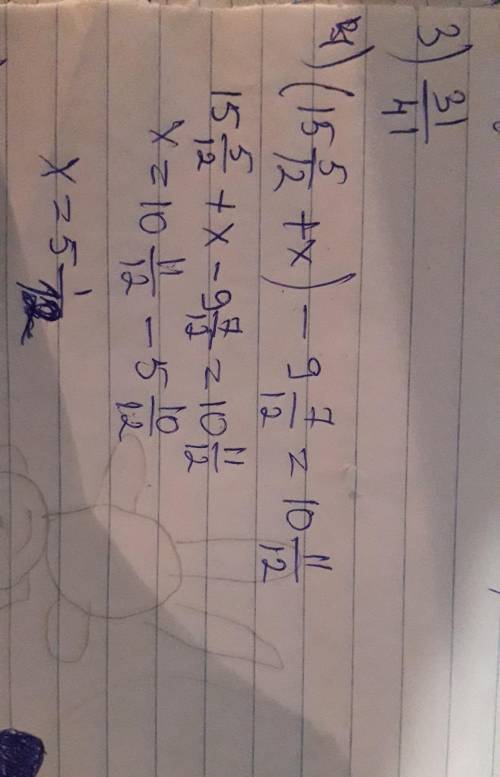 3) 31/41
4) (15 5/12 + x) - 9 7/12 = 10 11/12
15 5/12 + x - 9 7/12 = 10 11/12
x = 10 11/12 - 5 10/12
x = 5 1/12